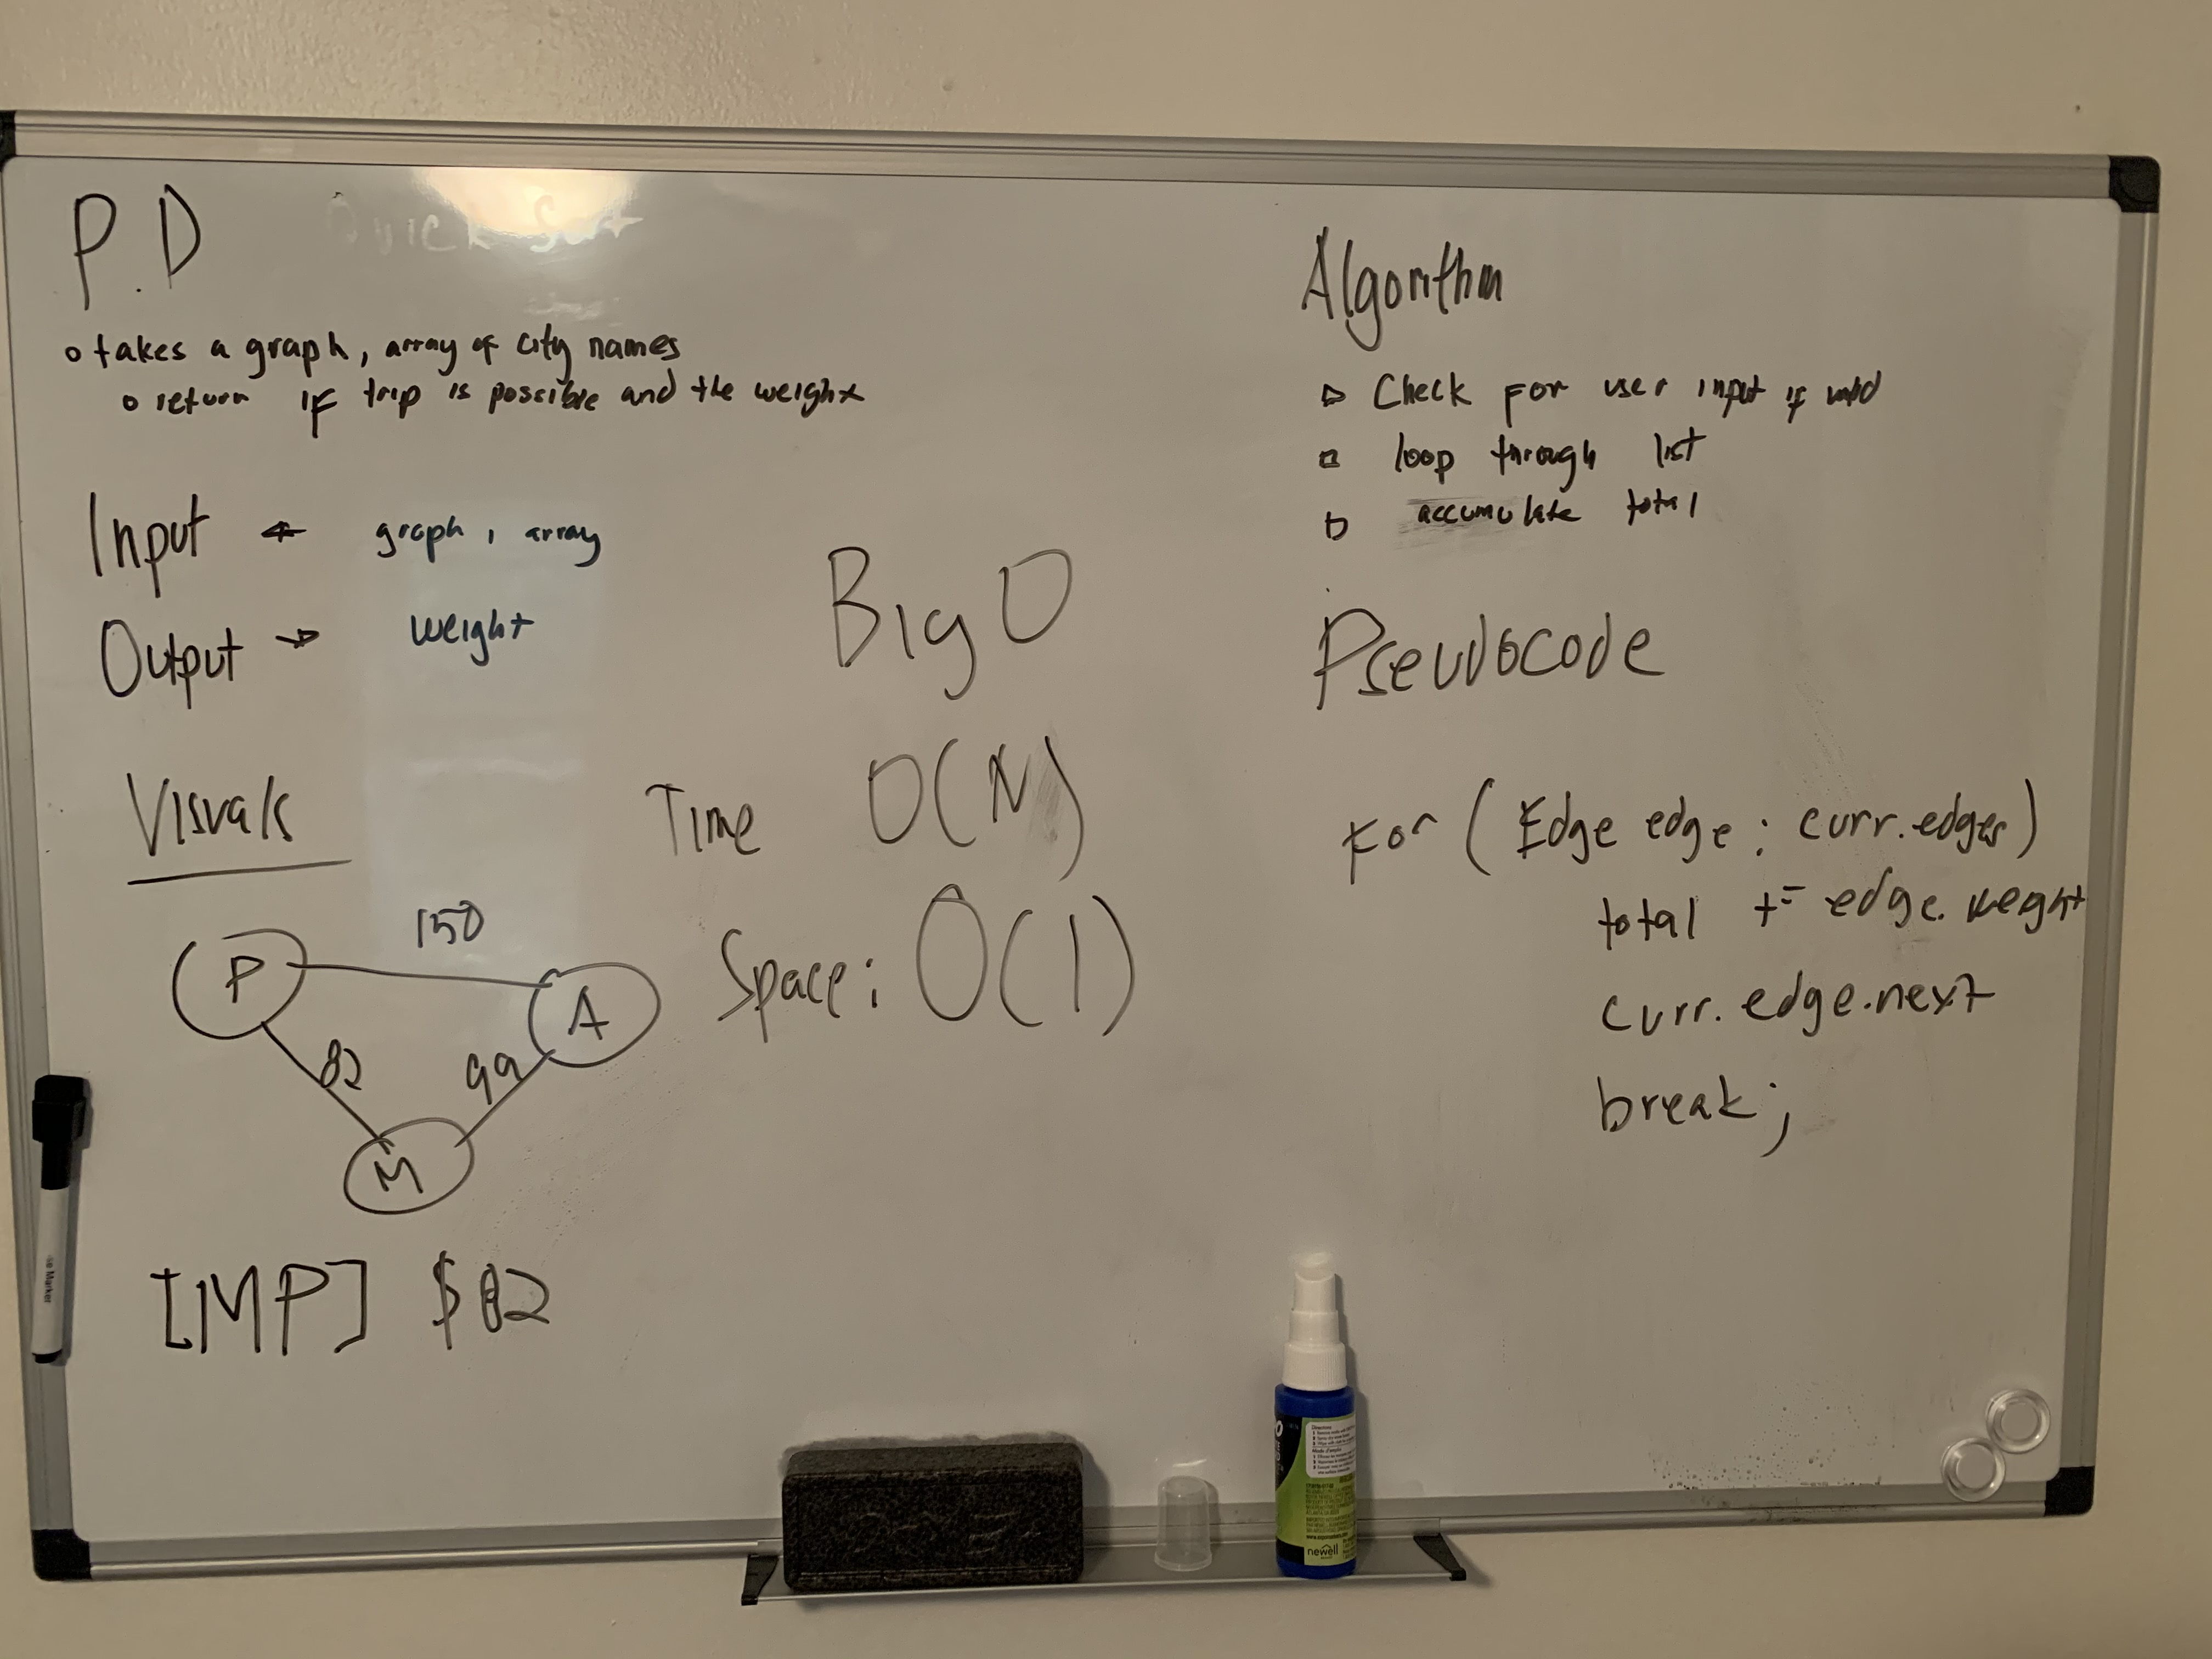 P.D
Quick Sort
takes a graph, array of city names
return if trip is possible and the weight
Input ← graph, array
Output → weight
Visuals
150
P
A
82
99
M
[MP] $82
Big O
Time O(N)
Space: O(1)
Algorithm
Check for user input if valid
loop through list
accumulate total
Pseudocode
For (Edge edge : curr.edges)
total += edge.weght
curr.edge.next
break;
se Marker
newell